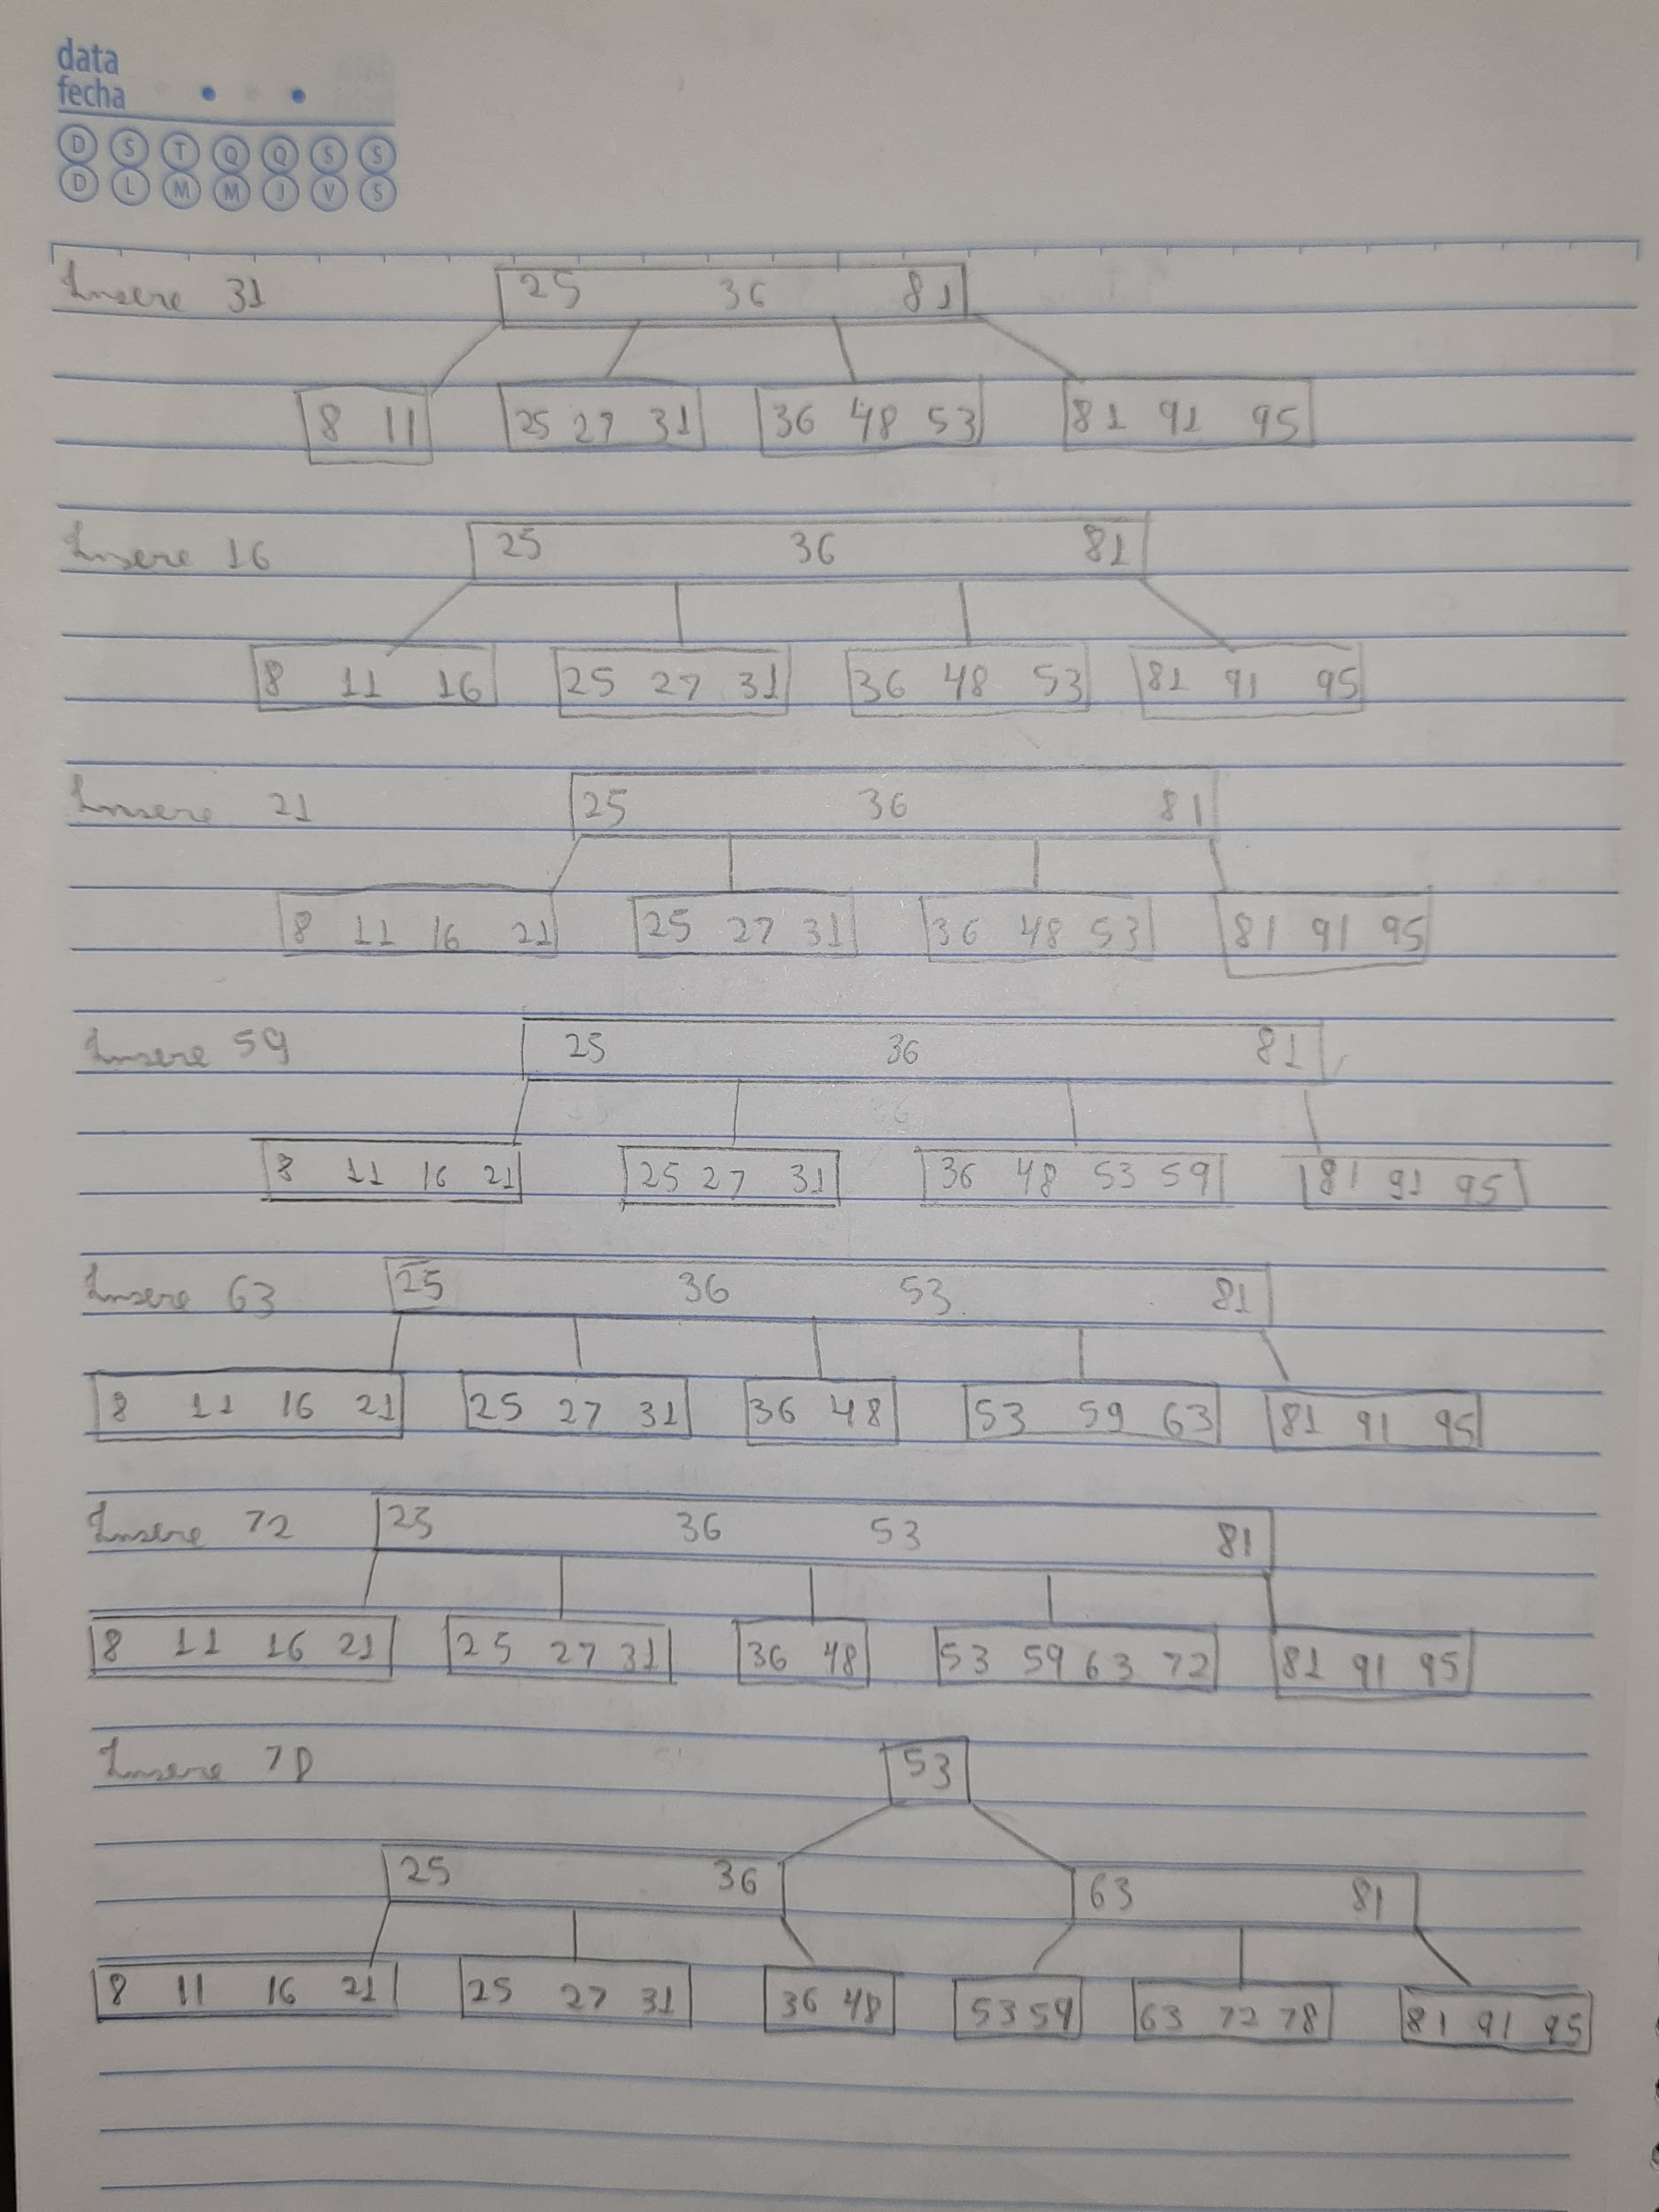 data
fecha
D S T Q Q S S
D L M M J V S
Insere 31 25 36 81
8 11 25 27 31 36 48 53 81 91 95
Insere 16 25 36 81
8 11 16 25 27 31 36 48 53 81 91 95
Insere 21 25 36 81
8 11 16 21 25 27 31 36 48 53 81 91 95
Insere 59 25 36 81
8 11 16 21 25 27 31 36 48 53 59 81 91 95
Insere 63 25 36 53 81
8 11 16 21 25 27 31 36 48 53 59 63 81 91 95
Insere 72 25 36 53 81
8 11 16 21 25 27 31 36 48 53 59 63 72 81 91 95
Insere 78 53
25 36 63 81
8 11 16 21 25 27 31 36 48 53 59 63 72 78 81 91 95